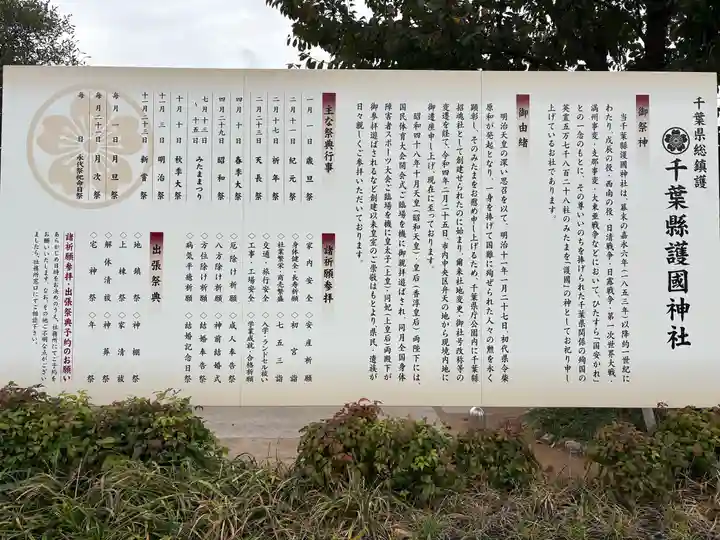 千葉県総鎮護
千葉縣護國神社
御祭神
当千葉縣護國神社は、幕末の嘉永六年(一八五三年)以降約一世紀に
わたり、戊辰の役・西南の役・日清戦争・日露戦争・第一次世界大戦・
満州事変・支那事変・大東亜戦争などにおいて、ひたすら「国安かれ」
との一念のもとに、その尊いいのちを捧げられた千葉県関係の殉国の
英霊五万七千八百二十八柱のみたまを「護国」の神としてお祀り申し
上げているお社であります。
御由緒
明治天皇の深い思召を以て、明治十一年一月二十七日、初代県令柴
原和が発起となり、一身を捧げて国難に殉ぜられた人々の勲を永く
顕彰し、そのみたまをお慰め申し上げるため、千葉県庁公園内に千葉縣
招魂社として創建せられたのに始まり、爾来社地変更・御社号改称等の
変遷を経て、令和四年二月二十五日市内中央区弁天の地から現境内地に
御遷座申し上げ、現在に至っております。
昭和四十八年十月天皇(昭和天皇)、皇后(香淳皇后)両陛下には、
国民体育大会開会式ご臨場を機に御親拝遊ばされ、同月全国身体
障害者スポーツ大会ご臨場を機に皇太子(上皇)同妃(上皇后)両殿下が
御参拝遊ばされるなど創建以来皇室のご崇敬はもとより、県民、遺族が
日々親しくご参拝いただいております。
主な祭典行事
一月一日 歳旦祭
二月十一日 紀元祭
二月十七日 祈年祭
二月二十三日 天長祭
四月十日 春季大祭
四月二十九日 昭和祭
七月十三日
~十五日 みたままつり
十月十日 秋季大祭
十一月三日 明治祭
十一月二十三日 新嘗祭
毎月一日 月旦祭
毎月二十二日 月次祭
毎日 永代祭祀命日祭
諸祈願参拝
◇家内安全 ◇安産祈願
◇身体健全・長寿祈願
◇社業繁栄・商売繁盛 ◇七五三詣
◇交通・旅行安全 ◇初宮詣
◇工事・工場安全 ◇入学・ランドセル祓い
◇学業成就・合格祈願
◇厄除け祈願 ◇成人奉告祭
◇八方除け祈願 ◇神前結婚式
◇方位除け祈願 ◇結婚奉告祭
◇病気平癒祈願 ◇結婚記念日祭
出張祭典
◇地鎮祭 ◇神棚祭
◇上棟祭 ◇家清祓
◇解体清祓 ◇神葬祭
◇宅神祭 ◇年祭
諸祈願参拝・出張祭典予約のお願い
あらかじめ日時をお決めのうえ、社務所にてご予約を
お願いいたします。なお、その他ご不明な点がござい
ましたら、社務所窓口にてご相談下さい。